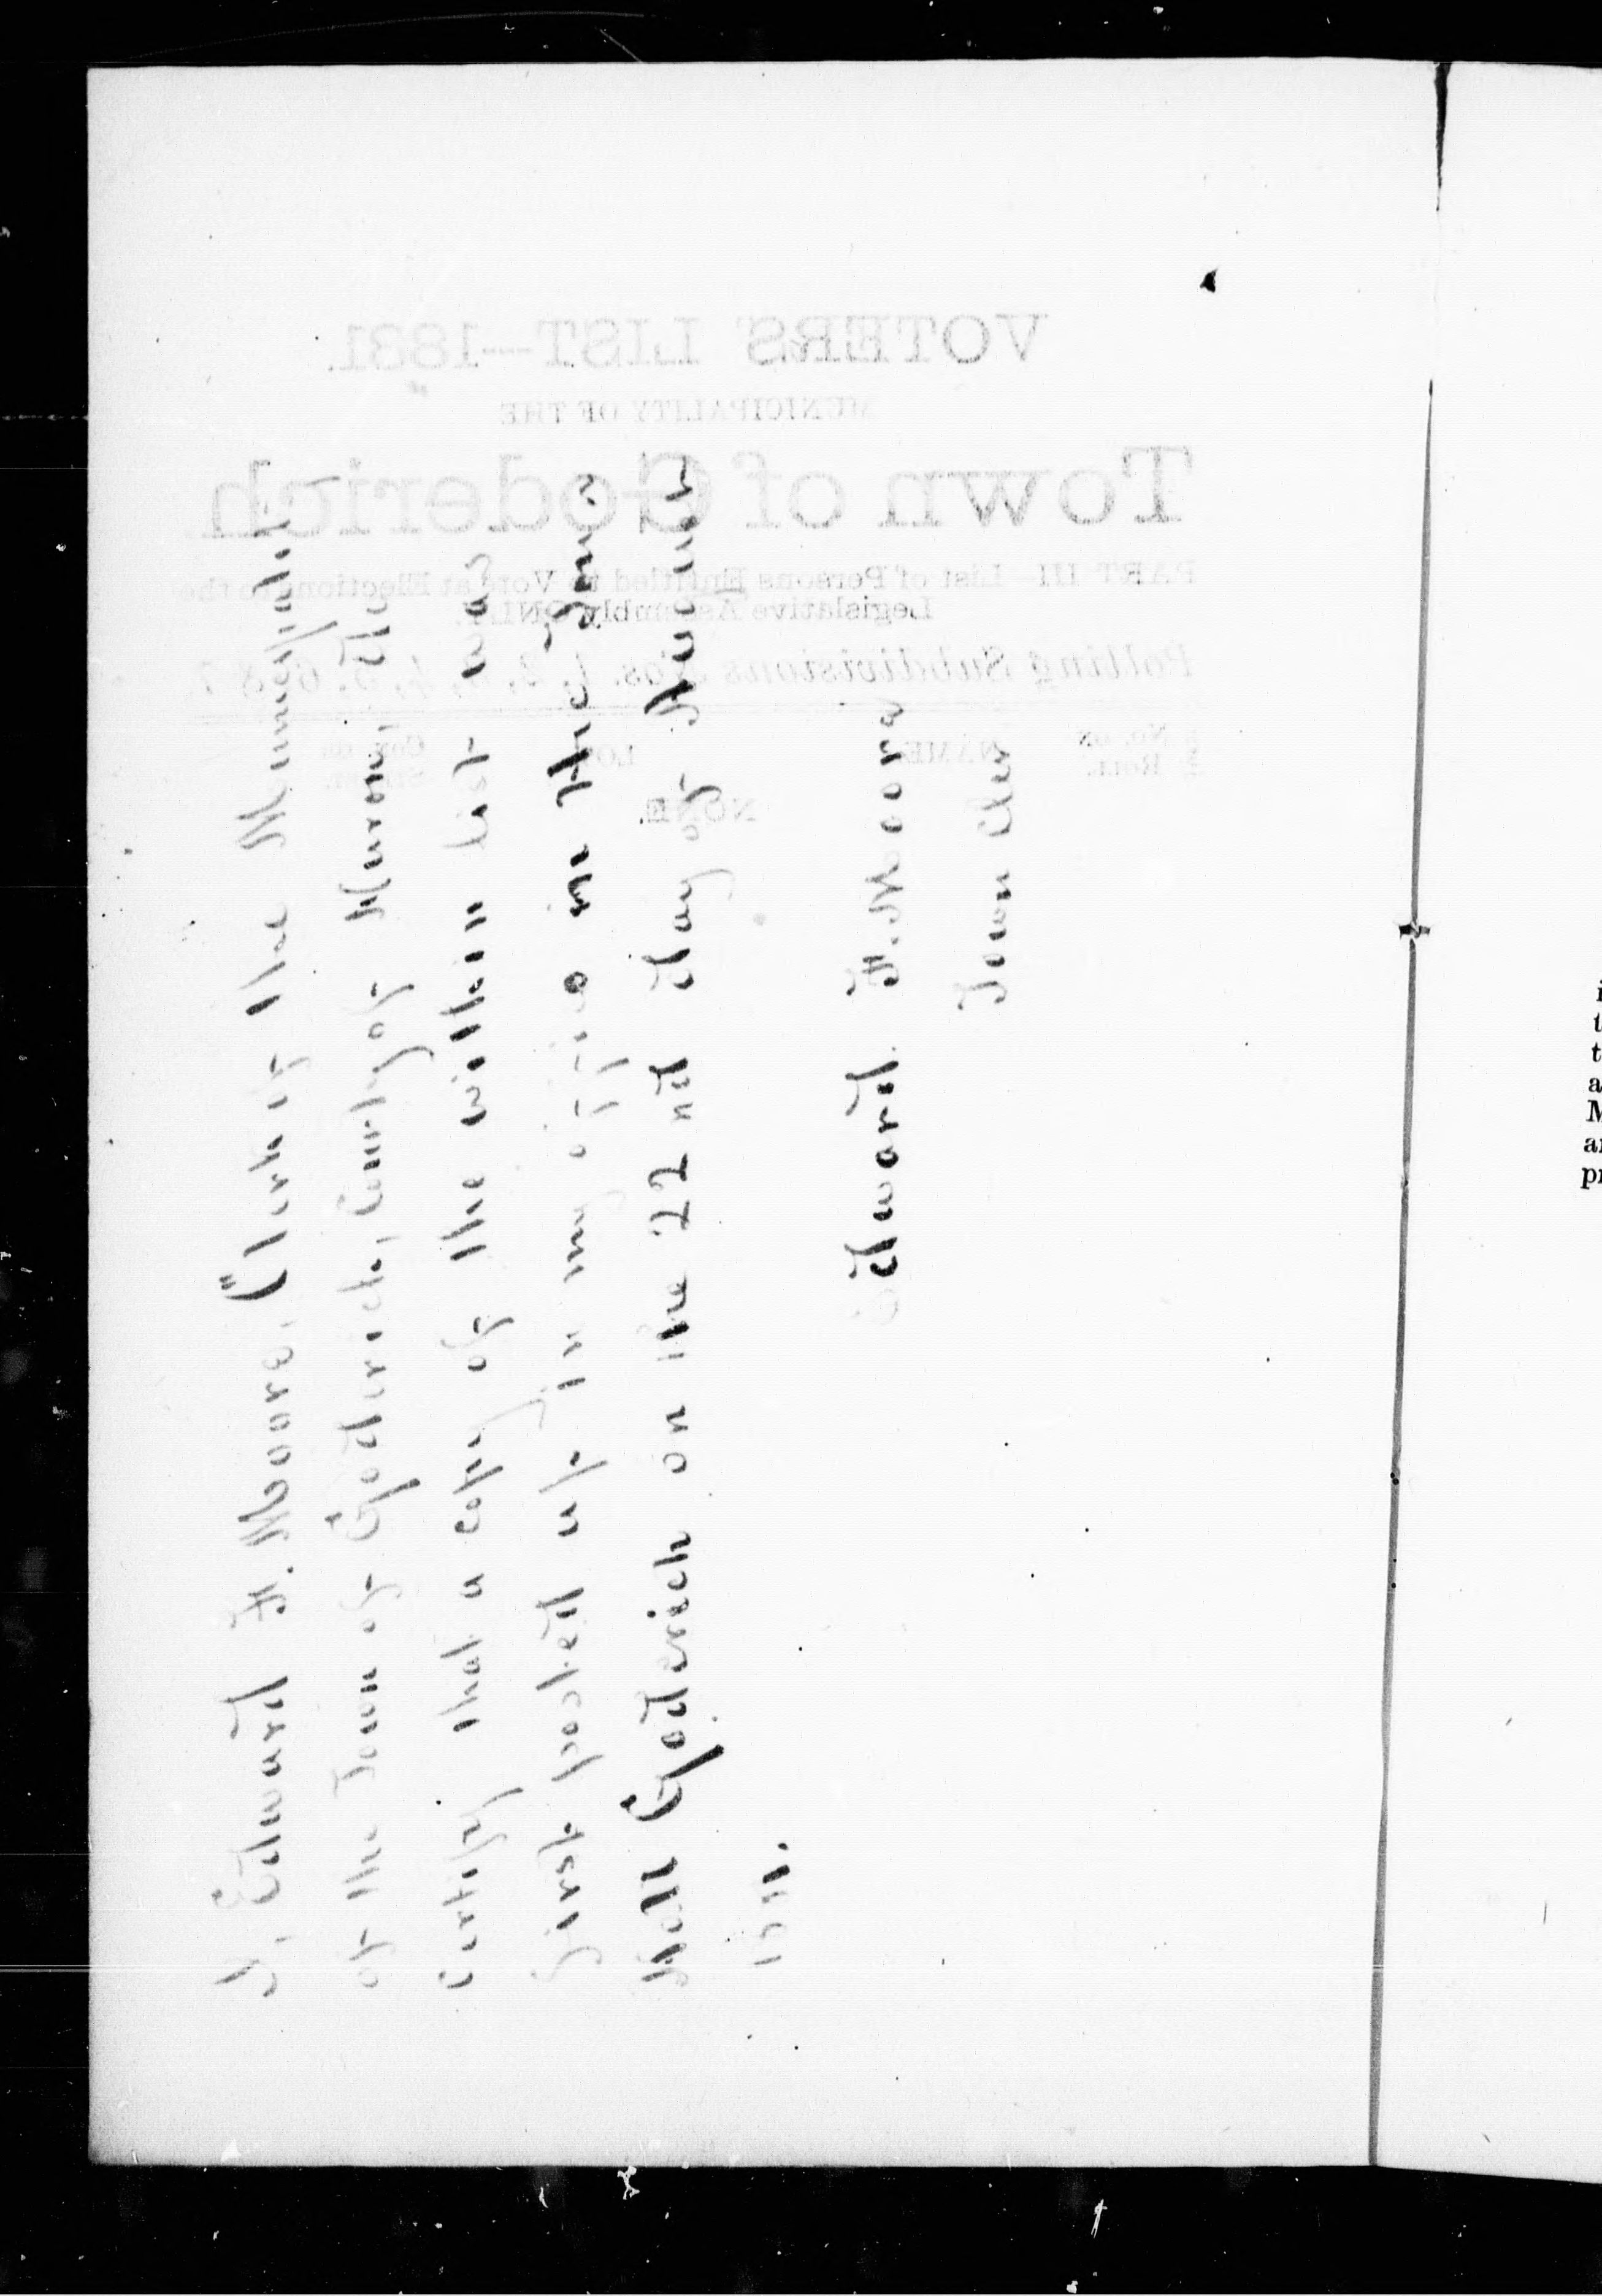 I, Edward F. Moore, Clerk of the Municipality
of the Town of Goderich, County of Huron, do
certify that a copy of the within list was
first posted up in my office in the Town
Hall Goderich on the 22nd day of
Edward F. Moore
Town Clerk
VOTERS' LIST—1881.
MUNICIPALITY OF THE
Town of Goderich
PART III—List of Persons Entitled to Vote at Elections to the
Legislative Assembly ONLY.
Polling Subdivisions Nos. 1, 2, 3, 4, 5, 6 & 7.
No. on Roll. NAME. LOT.
NONE.